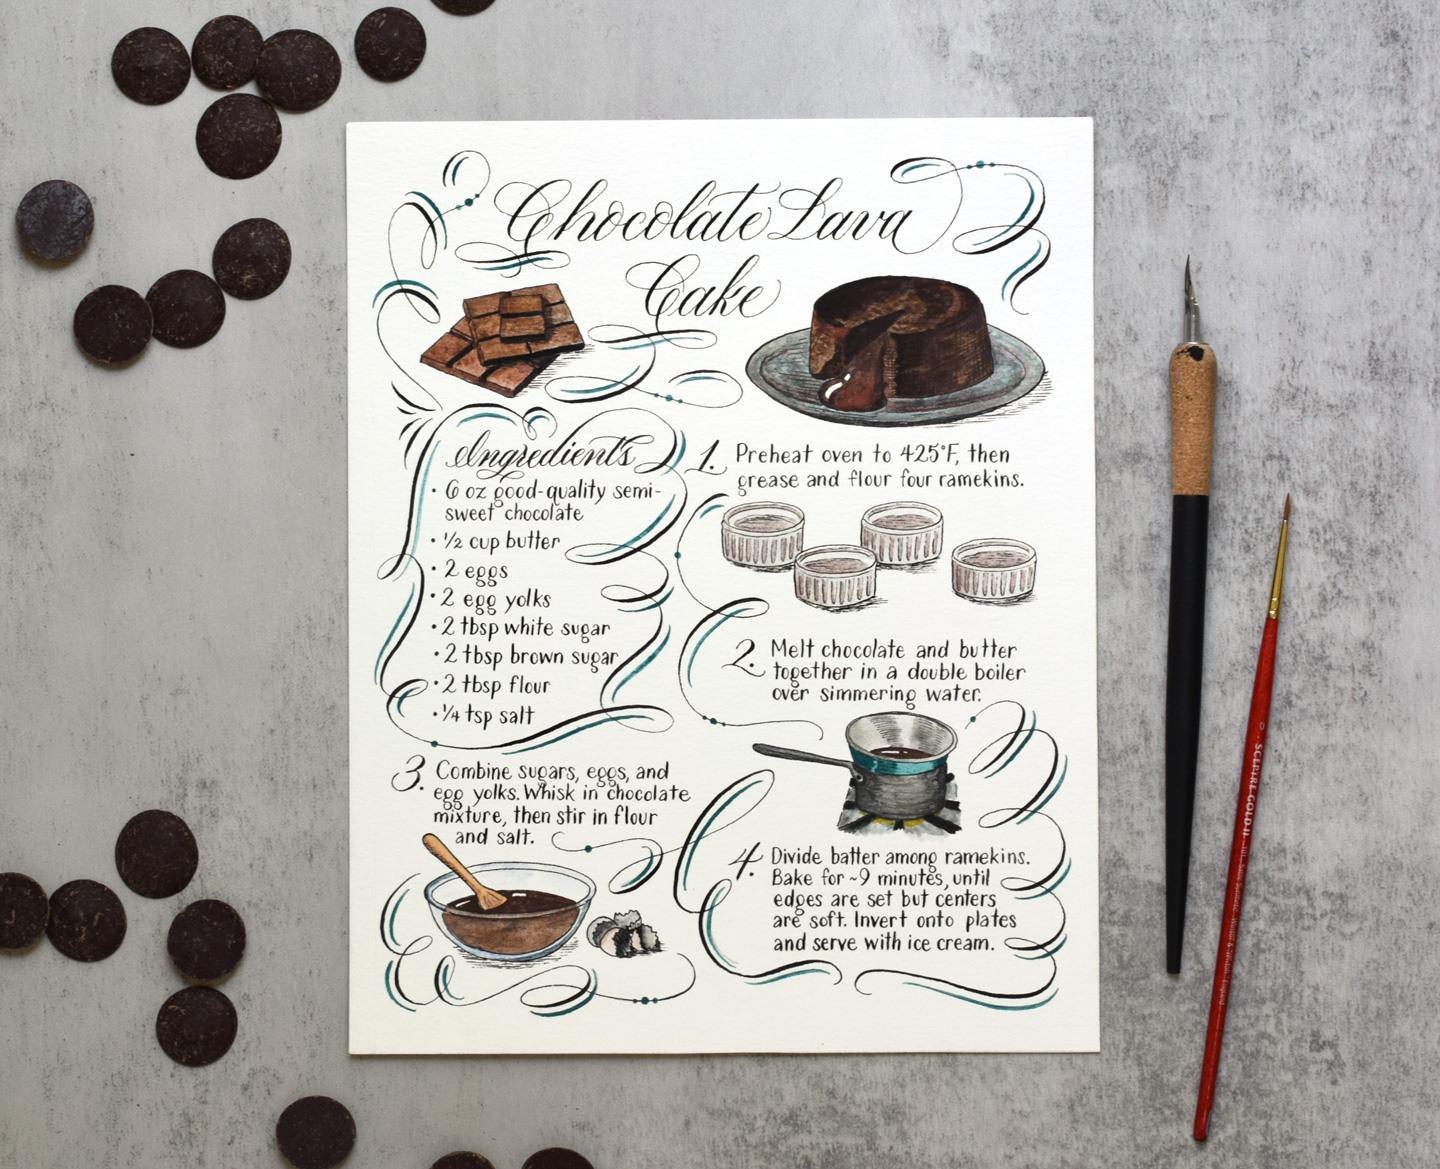 Chocolate Lava
Cake
Ingredients
• 6 oz good-quality semi-
sweet chocolate
• 1/2 cup butter
• 2 eggs
• 2 egg yolks
• 2 tbsp white sugar
• 2 tbsp brown sugar
• 2 tbsp flour
• 1/4 tsp salt
1. Preheat oven to 425°F, then
grease and flour four ramekins.
2. Melt chocolate and butter
together in a double boiler
over simmering water.
3. Combine sugars, eggs, and
egg yolks. Whisk in chocolate
mixture, then stir in flour
and salt.
4. Divide batter among ramekins.
Bake for ~9 minutes, until
edges are set but centers
are soft. Invert onto plates
and serve with ice cream.
SCEPTRE GOLD II